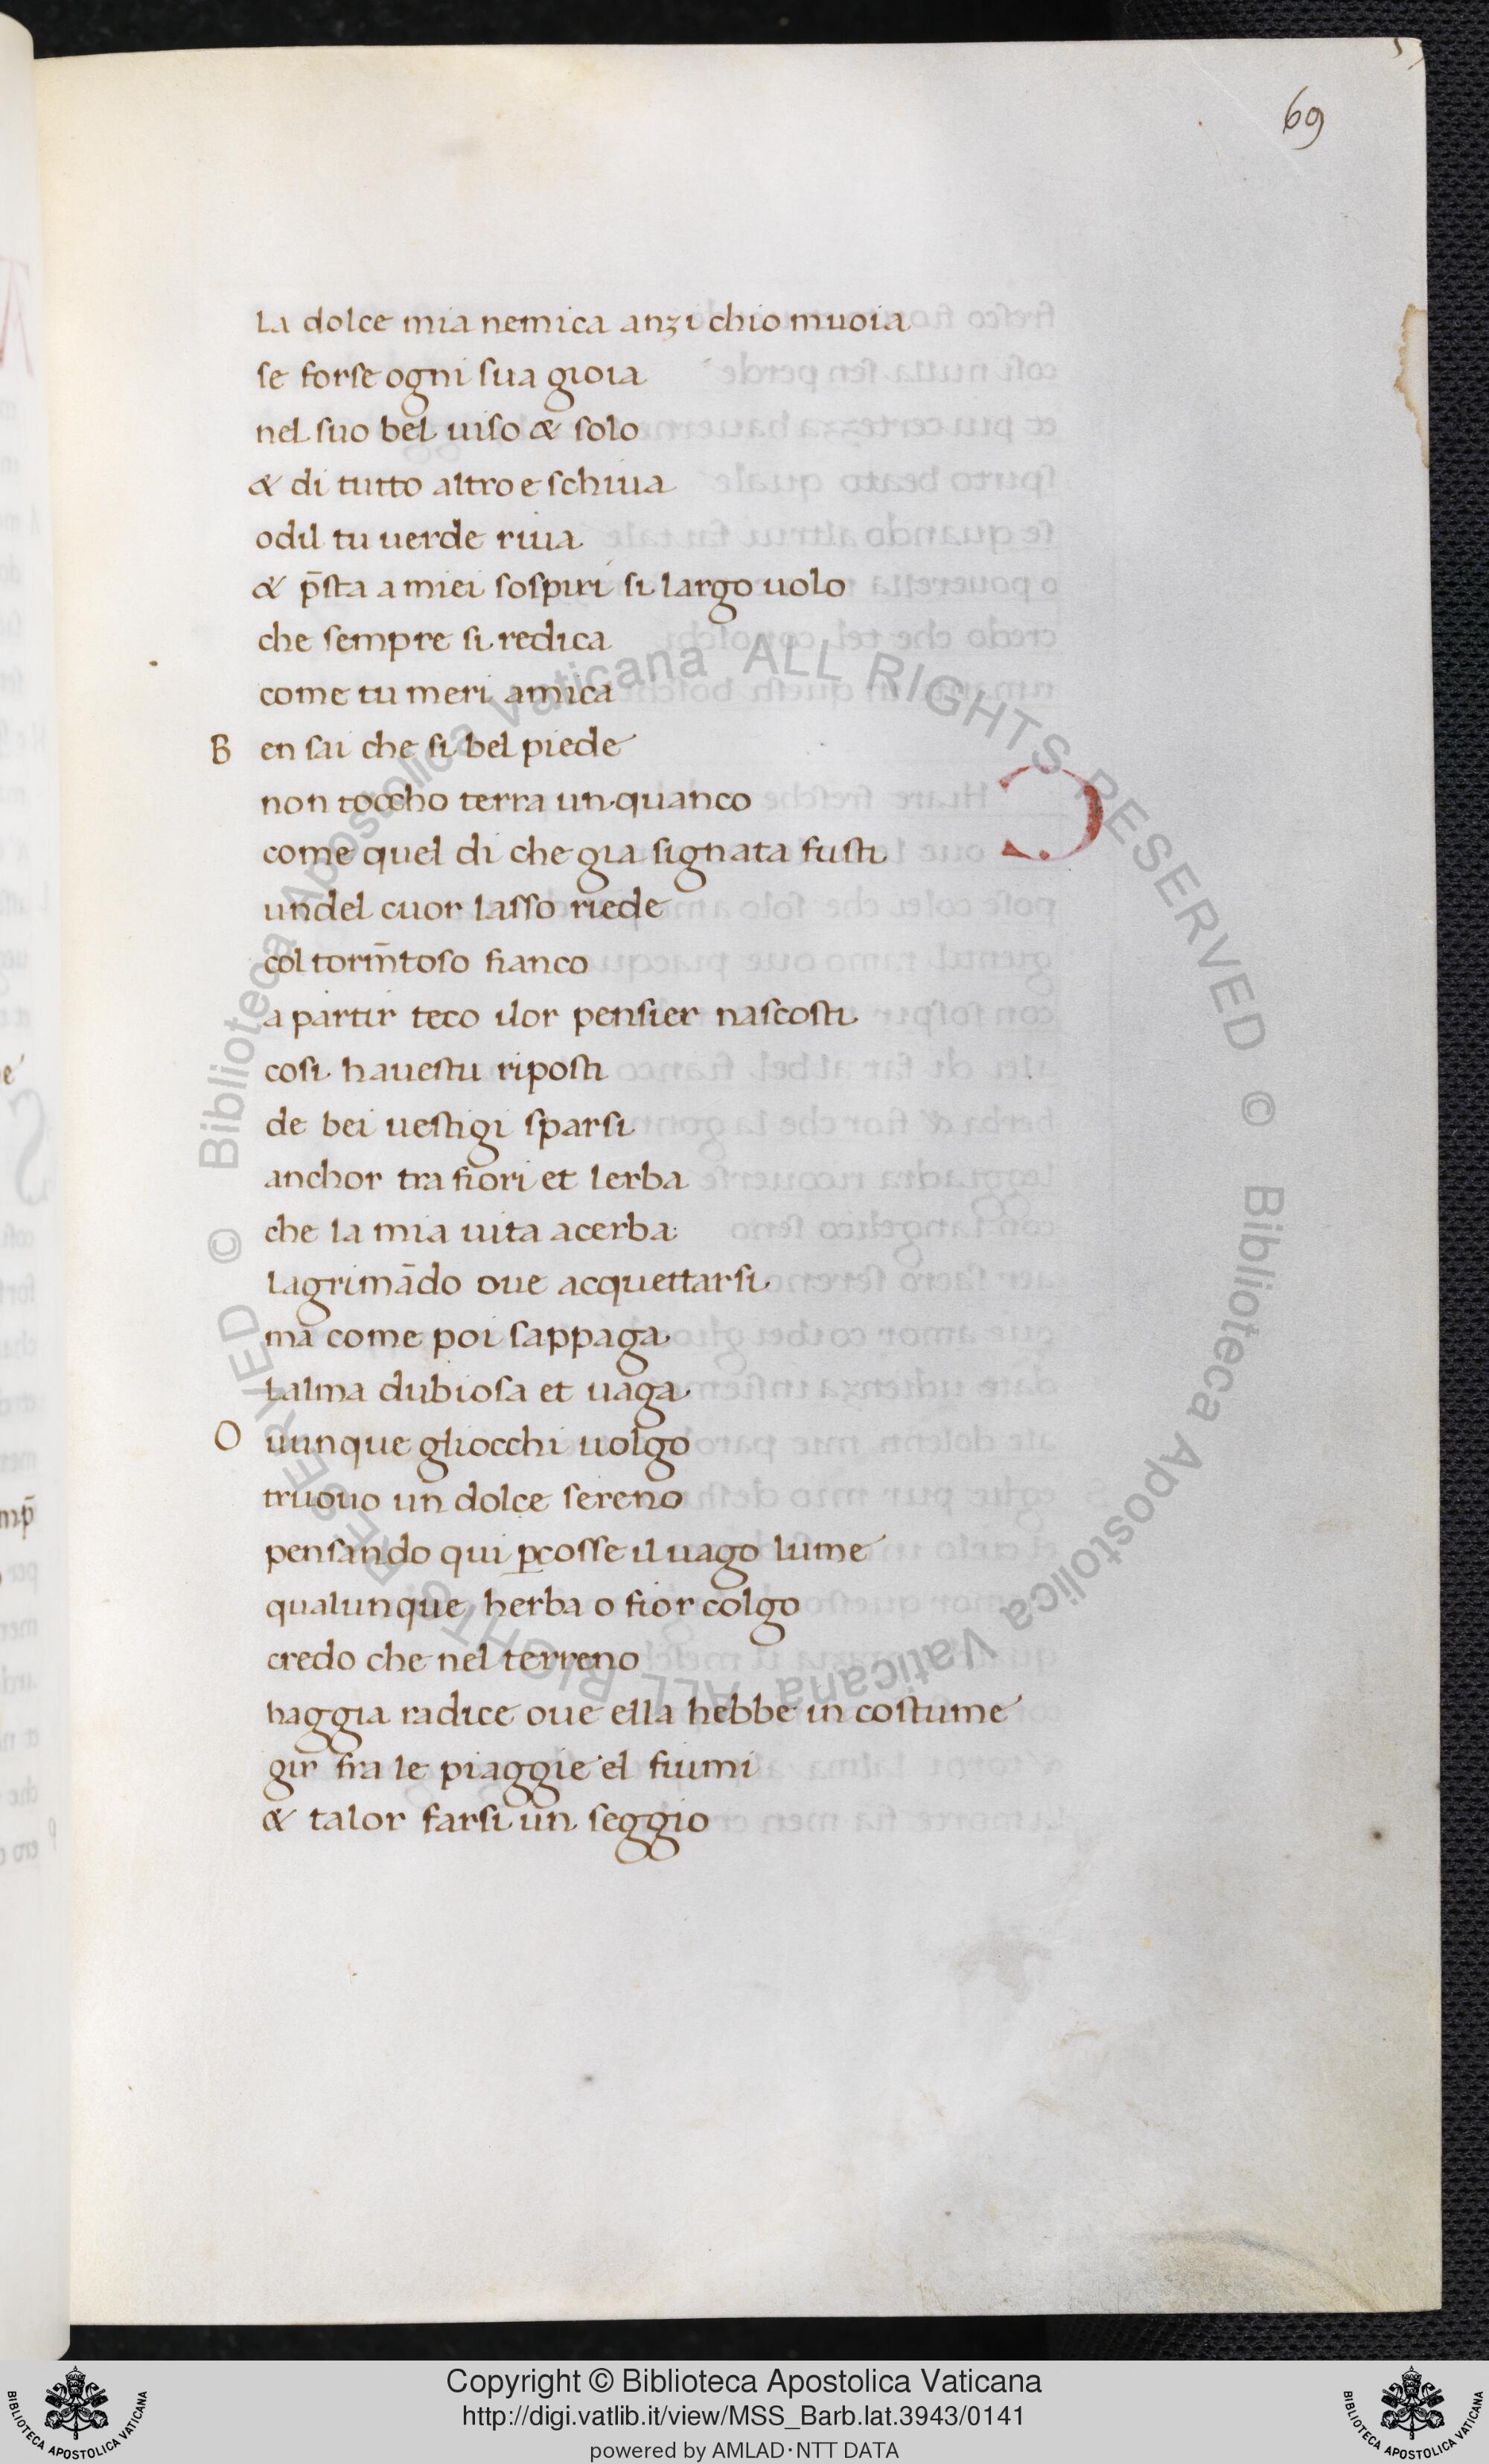 69
La dolce mia nemica anzi chio muoia
se forse ogni sua gioia
nel suo bel uiso & solo
& di tutto altro e schiua
odil tu uerde riua
& p̄sta a miei sospiri si largo uolo
che sempre si redica
come tu meri amica
B en sai che si bel piede
non toccho terra unquanco
come quel di che gia signata fusti
undel cuor lasso riede
col torm̄toso fianco
a partir teco ilor pensier nascosti
cosi hauestu riposti
de bei uestigi sparsi
anchor tra fiori et lerba
che la mia uita acerba
lagrimādo oue acquettarsi
ma come poi sappaga
lalma dubiosa et uaga
O uunque gliocchi uolgo
truouo un dolce sereno
pensando qui ꝑcosse il uago lume
qualunque herba o fior colgo
credo che nel terreno
haggia radice oue ella hebbe in costume
gir fra le piaggie el fiumi
& talor farsi un seggio
Biblioteca Apostolica Vaticana ALL RIGHTS RESERVED © Biblioteca Apostolica Vaticana ALL RIGHTS RESERVED ©
Copyright © Biblioteca Apostolica Vaticana
http://digi.vatlib.it/view/MSS_Barb.lat.3943/0141
powered by AMLAD·NTT DATA
BIBLIOTECA APOSTOLICA VATICANA
BIBLIOTECA APOSTOLICA VATICANA